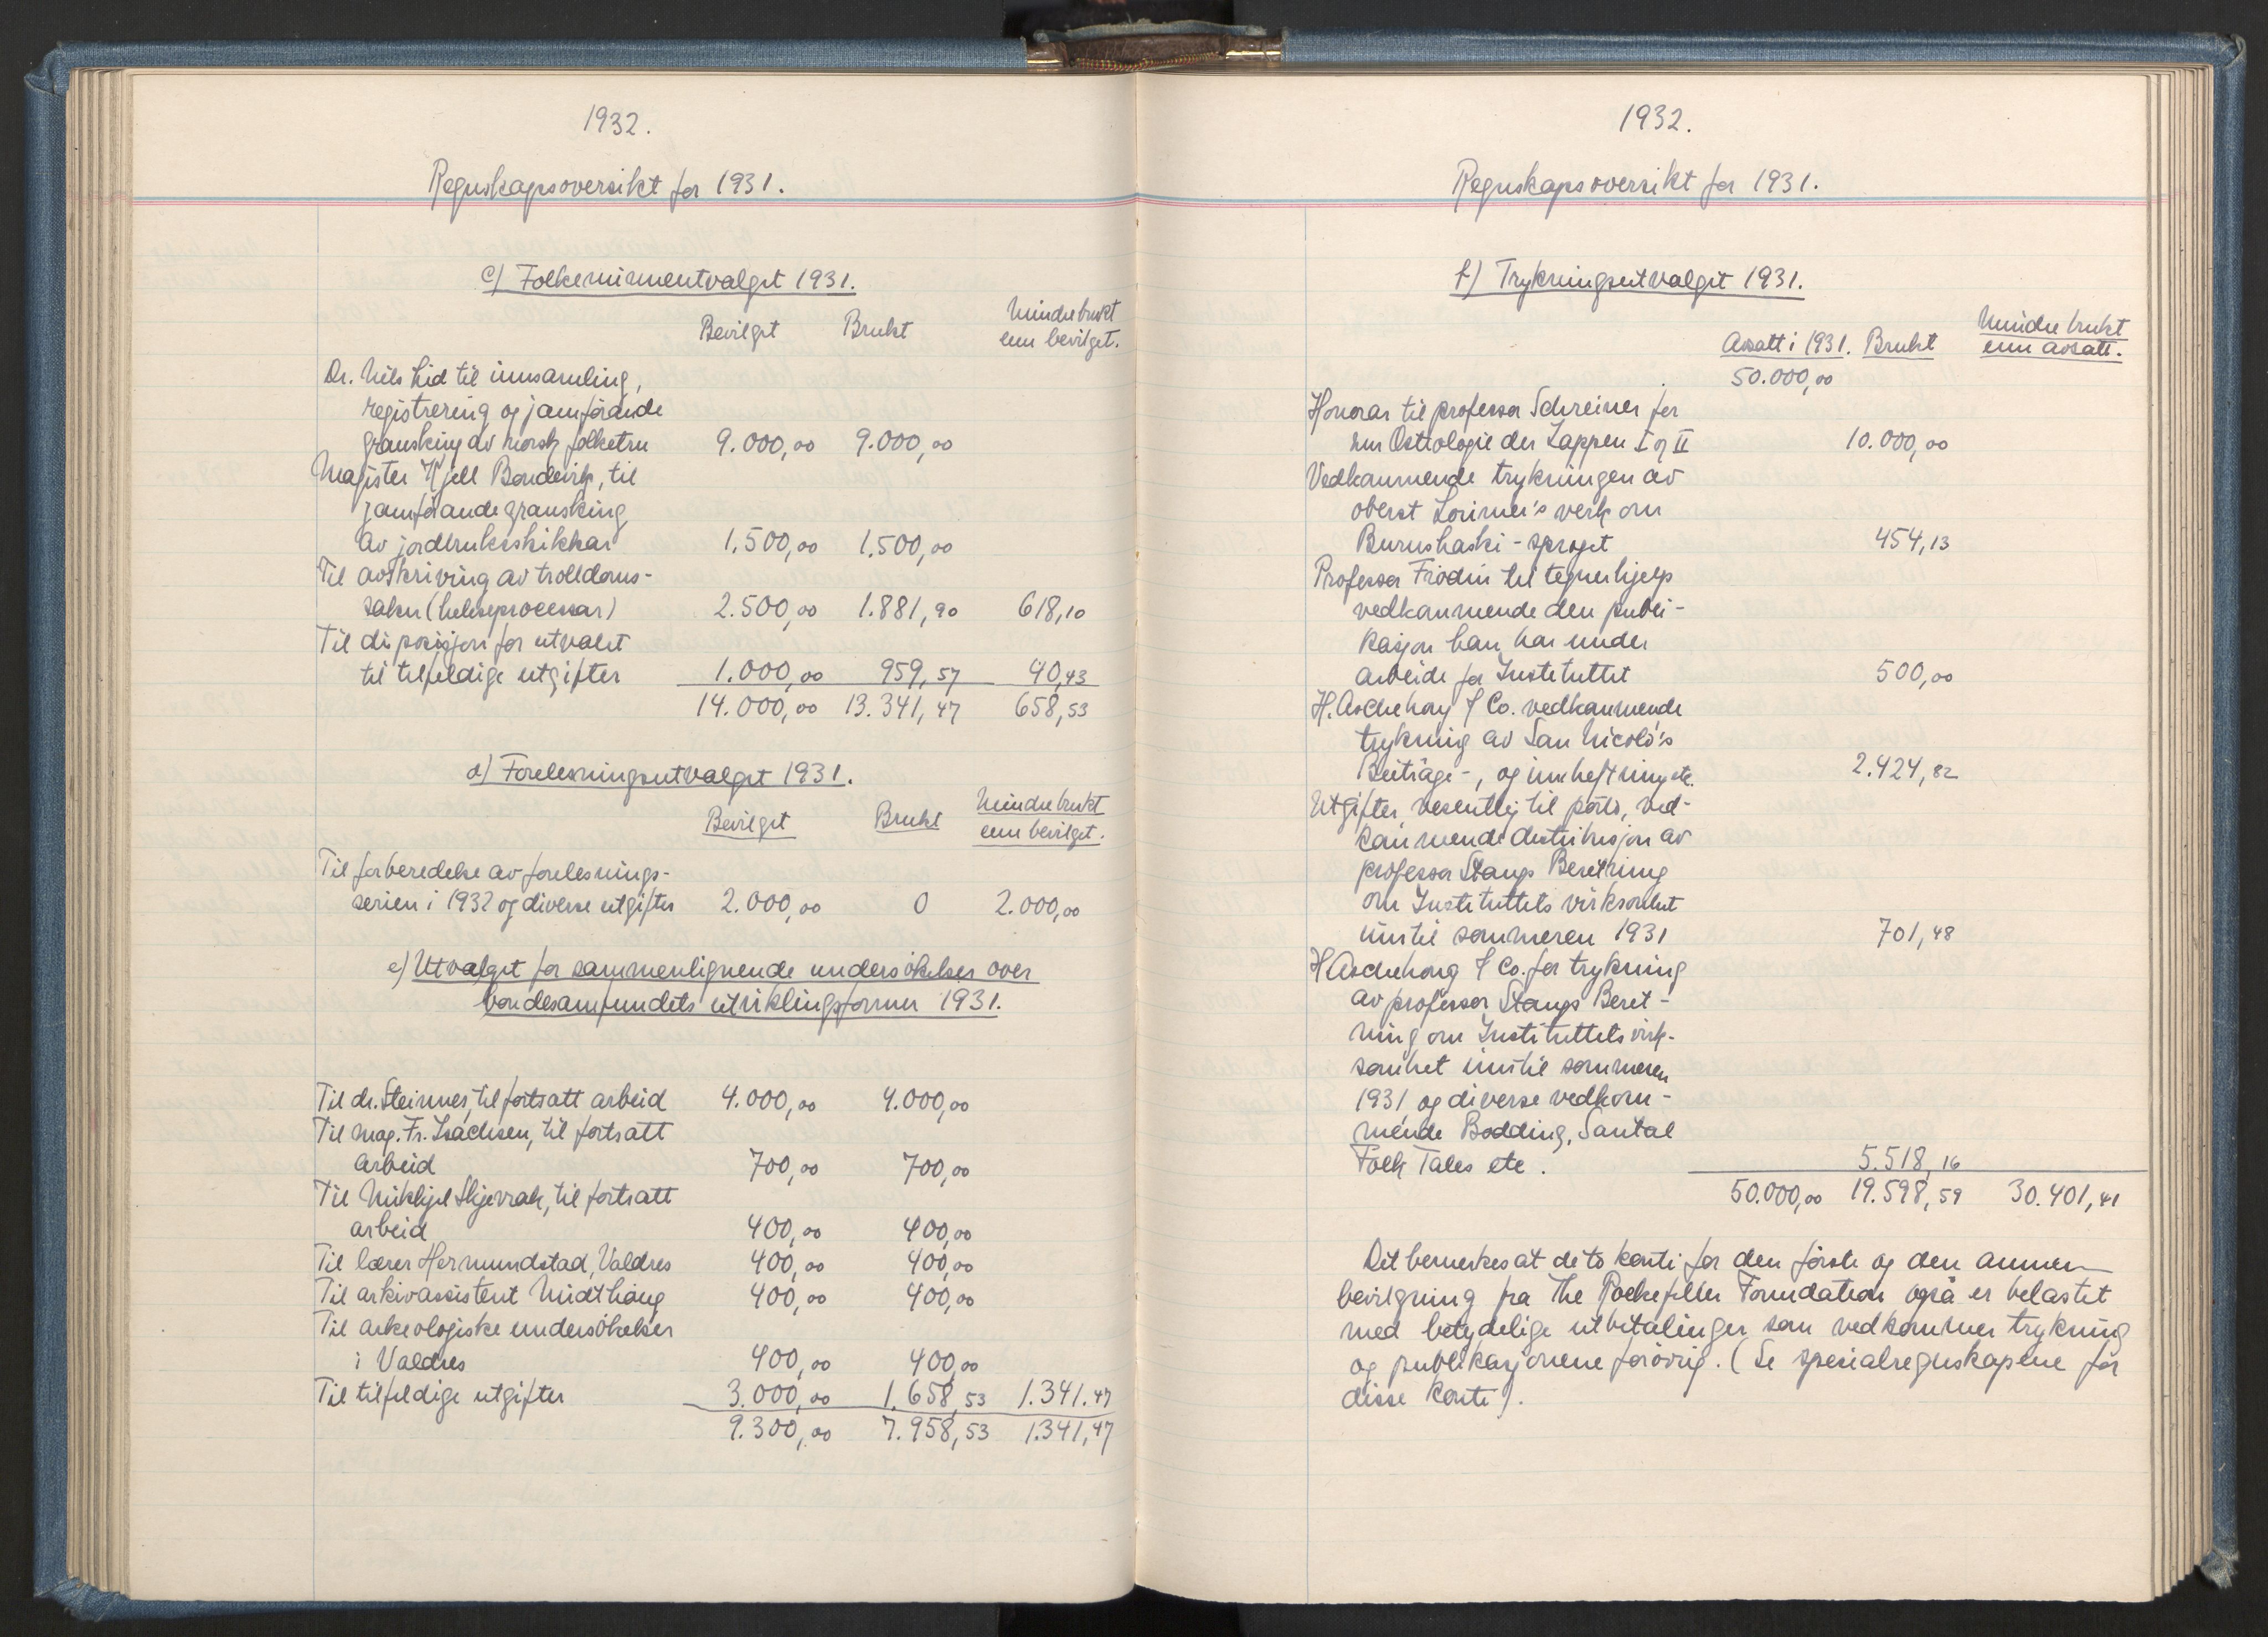 1932.
Regnskapsoversikt for 1931.
c) Folkeminneutvalget 1931.
Bevilget Brukt Mindre brukt
enn bevilget.
Dr. Nils Lid til innsamling,
registrering og jamførande
gransking av norsk folketru 9.000,00 9.000,00
Magister Kjell Bondevik, til
jamførande gransking
av jordbruksskikkar 1.500,00 1.500,00
Til avskriving av trolldoms-
saker (hekseprocessar) 2.500,00 1.881,90 618,10
Til disposisjon for utvalet
til tilfeldige utgifter 1.000,00 959,57 40,43
14.000,00 13.341,47 658,53
d) Forelesningsutvalget 1931.
Bevilget Brukt Mindre brukt
enn bevilget.
Til forberedelse av forelesnings-
serien i 1932 og diverse utgifter 2.000,00 0 2.000,00
e) Utvalget for sammenlignende undersökelser over
bondesamfundets utviklingsformer 1931.
Til dr. Steinnes, til fortsatt arbeid 4.000,00 4.000,00
Til mag. Fr. Isachsen, til fortsatt
arbeid 700,00 700,00
Til Mikkjel Skjevrak, til fortsatt
arbeid 400,00 400,00
Til lærer Hermundstad, Valdres 400,00 400,00
Til arkivassistent Midthaug 400,00 400,00
Til arkeologiske undersökelser
i Valdres 400,00 400,00
Til tilfeldige utgifter 3.000,00 1.658,53 1.341.47
9.300,00 7.958,53 1.341,47
1932.
Regnskapsoversikt for 1931.
f) Trykningsutvalget 1931.
Avsatt i 1931. Brukt Mindre brukt
enn avsatt.
50.000,00
Honorar til professor Schreiner for
hm Osteologie der Lappen I og II 10.000,00
Vedkommende trykningen av
oberst Lorimer's verk om
Burushaski-sproget 454,13
Professor Frödin til tegnerhjelp
vedkommende den publi-
kasjon han har under
arbeide for Instituttet 500,00
H. Aschehoug & Co. vedkommende
trykning av San Nicolò's
Beiträge-, og innheftning etc. 2.424,82
Utgifter, vesentlig til porto, ved-
kommende distribusjon av
professor Stangs Beretning
om Instituttets virksomhet
inntil sommeren 1931 701,48
H Aschehoug & Co. for trykning
av professor Stangs Beret-
ning om Instituttets virk-
somhet inntil sommeren
1931, og diverse vedkom-
mende Bodding, Santal
Folk Tales etc. 5.518,16
50.000,00 19.598,59 30.401,41
Det bemerkes at de to konti for den förste og den annen
bevilgning fra The Rockefeller Foundation også er belastet
med betydelige utbetalinger som vedkommer trykning
og publikasjonene forövrig. (Se spesialregnskapene for
disse konti).